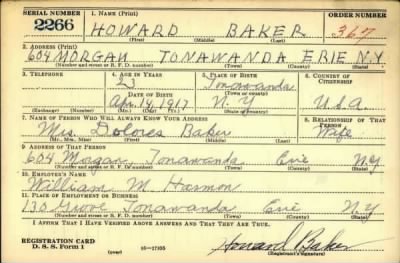 SERIAL NUMBER 1. NAME (Print) ORDER NUMBER
2266 HOWARD BAKER 367
(First) (Middle) (Last)
2. ADDRESS (Print)
604 MORGAN TONAWANDA ERIE N.Y
(Number and street or R. F. D. number) (Town) (County) (State)
3. TELEPHONE 4. AGE IN YEARS 5. PLACE OF BIRTH 6. COUNTRY OF CITIZENSHIP
23 Tonawanda
DATE OF BIRTH (Town or county)
Apr. 14, 1917 N.Y U.S.A.
(Exchange) (Number) (Mo.) (Day) (Yr.) (State or country)
7. NAME OF PERSON WHO WILL ALWAYS KNOW YOUR ADDRESS 8. RELATIONSHIP OF THAT PERSON
Mrs. Dolores Baker Wife
(Mr., Mrs., Miss) (First) (Middle) (Last)
9. ADDRESS OF THAT PERSON
604 Morgan, Tonawanda Erie N.Y
(Number and street or R. F. D. number) (Town) (County) (State)
10. EMPLOYER'S NAME
William M. Harmon
11. PLACE OF EMPLOYMENT OR BUSINESS
130 Grove Tonawanda Erie N.Y
(Number and street or R. F. D. number) (Town) (County) (State)
I AFFIRM THAT I HAVE VERIFIED ABOVE ANSWERS AND THAT THEY ARE TRUE.
REGISTRATION CARD
D. S. S. Form 1 (over) 16-17105 Howard Baker
(Registrant's signature)